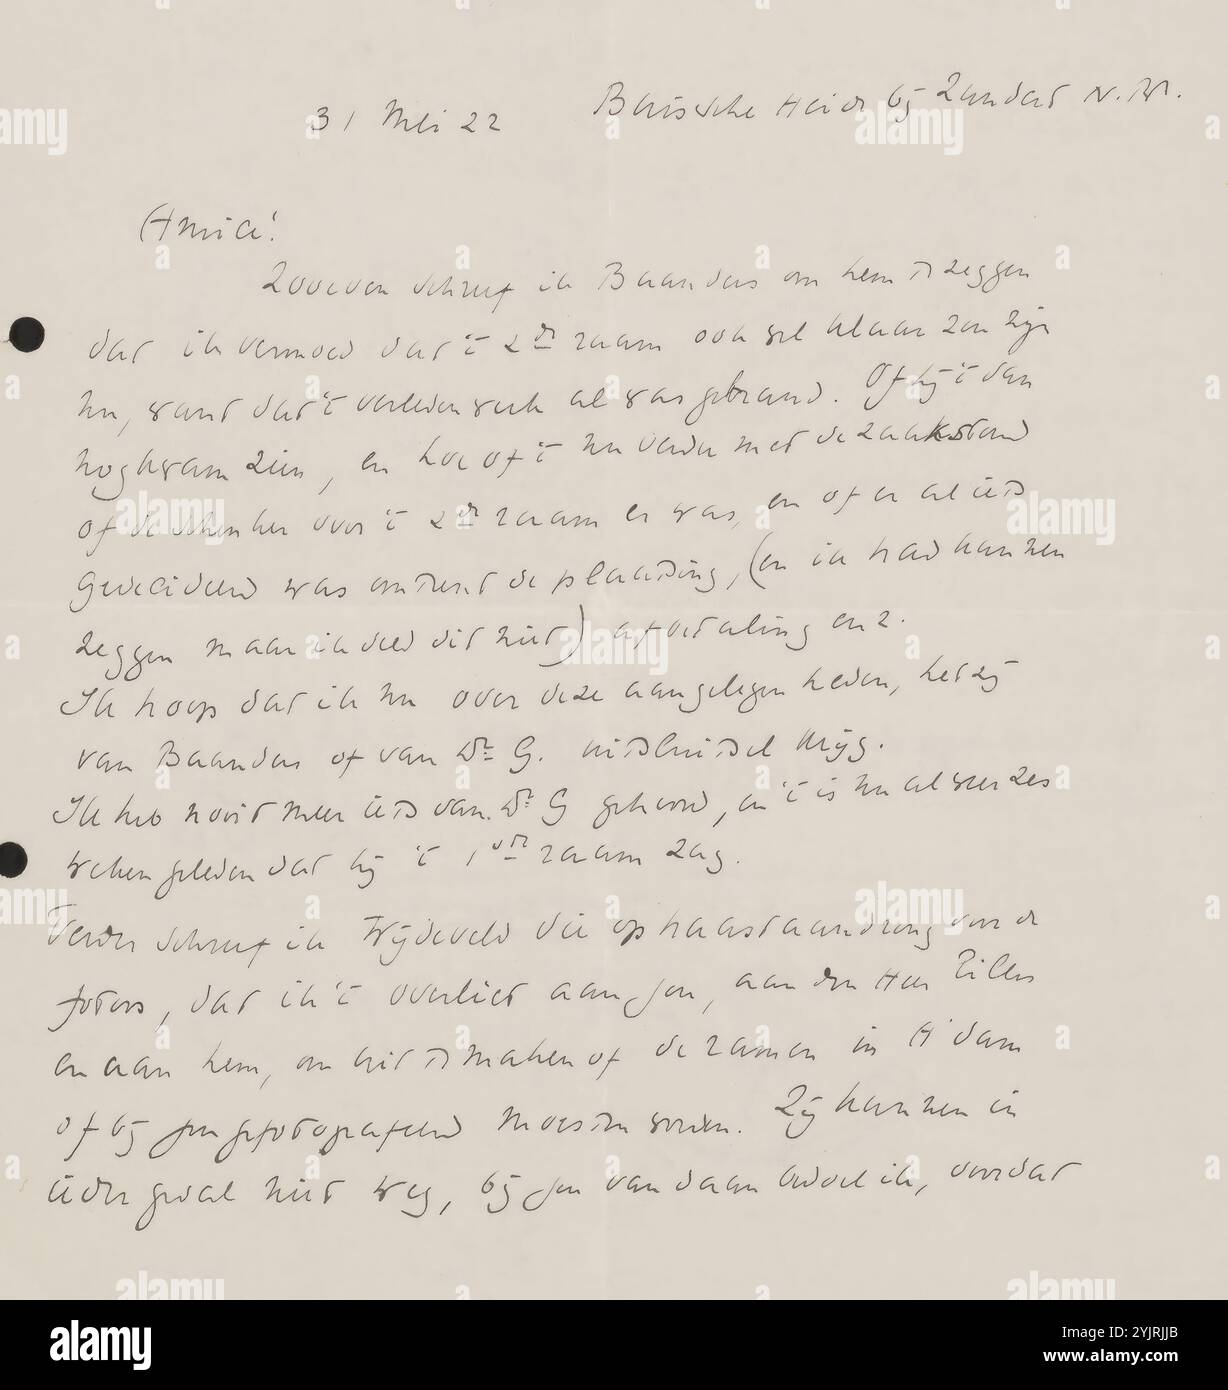 31 Mei 22 Buissche Heide bij Zundert N. Br.
Amice!
Zooeven schreef ik Baanders om hem te zeggen
dat ik vermoed dat 't 2de raam ook wel klaar zou zijn
nu, want dat 't verleden week al was gebrand. Of hij 't dan
nog kwam zien, en hoe of 't nu verder met de zaak stond
of de schenker voor 't 2de raam er was, en of er al iets
gedecideerd was omtrent de plaatsing, (en ik had kunnen
zeggen maar ik deed dit niet) afbetaling enz.
Ik hoop dat ik nu over deze aangelegenheden, hetzij
van Baanders of van Dr. G. uitsluitsel krijg.
Ik heb nooit meer iets van Dr. G gehoord, en 't is nu al weer zes
weken geleden dat hij 't 1ste raam zag.
Verder schreef ik Wijdeveld die op haast aandrong voor de
foto's, dat ik 't overliet aan jou, aan den Heer Zilles
en aan hem, om uit te maken of de ramen in A'dam
of bij jou gefotografeerd moesten worden. Zij kunnen in
ieder geval niet weg, bij jou vandaan bedoel ik, voordat
alamy
Image ID: 2YJRJJB
www.alamy.com